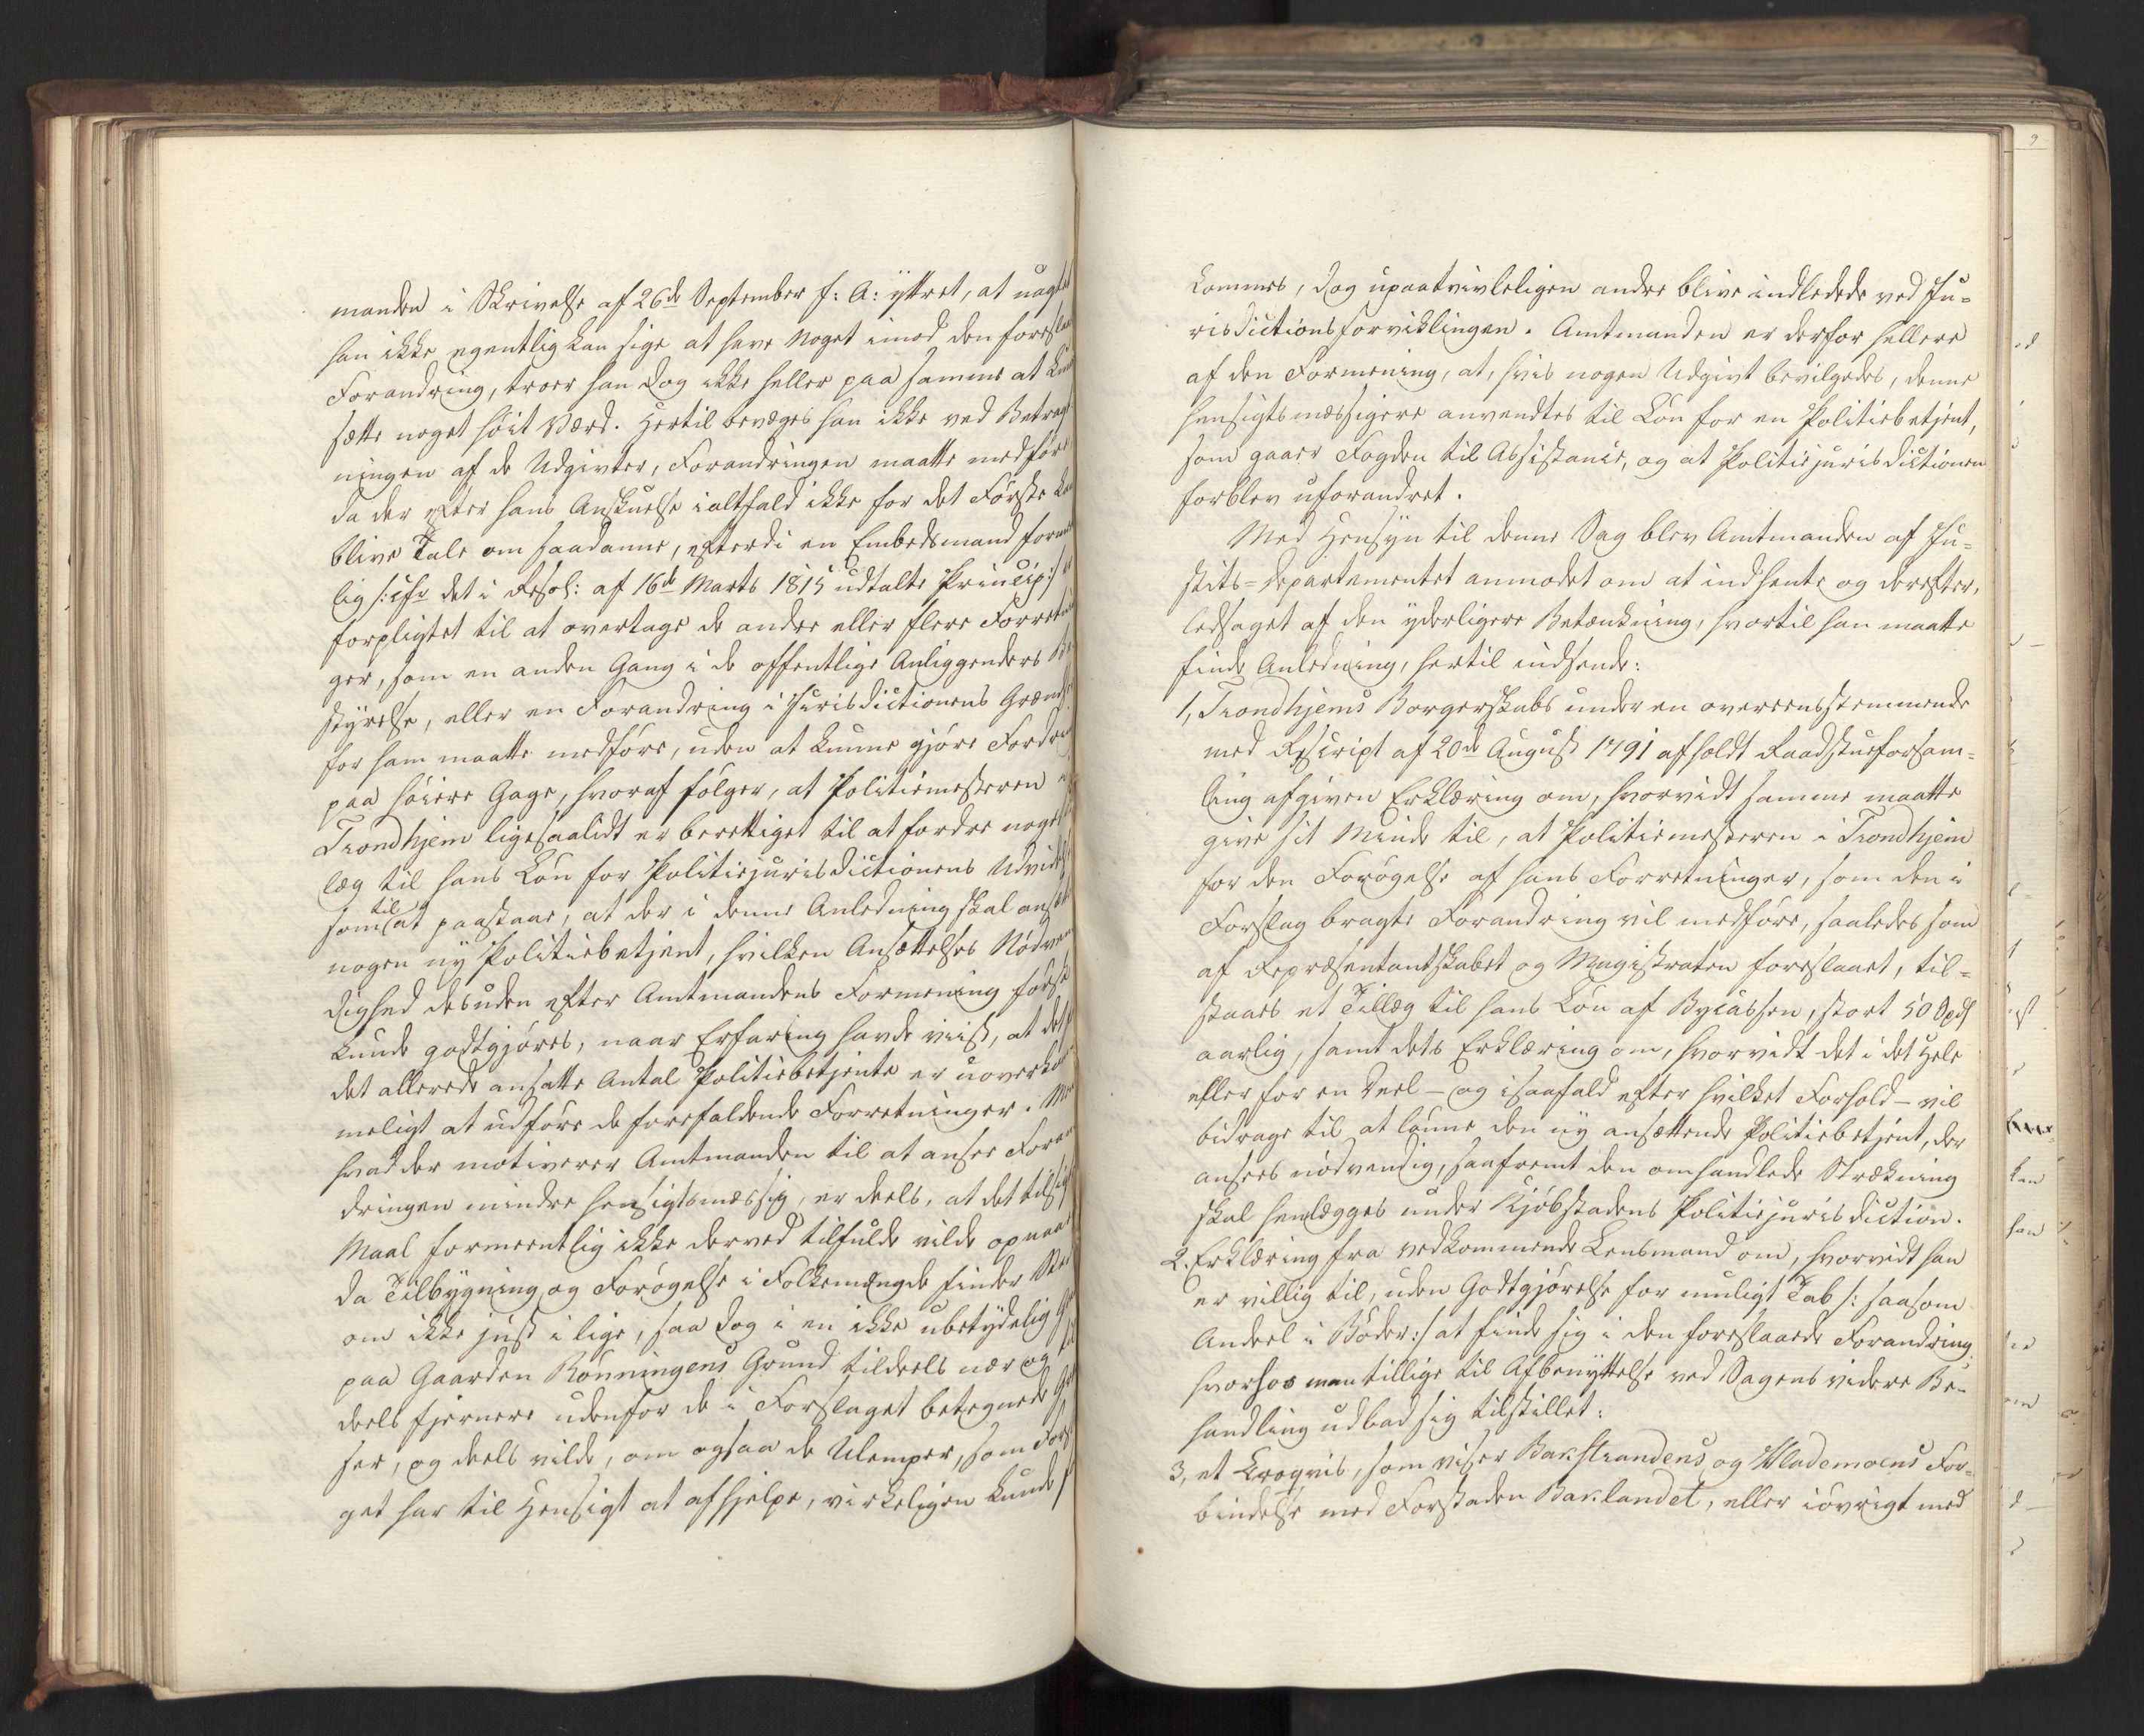 manden i Skrivelse af 26de September f: A: yttret, at uagtet
han ikke egentlig kan sige at have Noget imod den foreslaa
Forandring, troer han dog ikke heller paa samme at kun
sætte noget høit Værd. Hertil bevæges han ikke ved Betragt
ningen af de Udgivter, Forandringen maatte medføre
da der efter hans Anskuelse ialtfald ikke for det Første kan
blive Tale om saadanne, efterdi en Embedsmand forment
lig /: cfr det i Resol: af 16de Marts 1815 udtalte Princip :/ er
forpligtet til at overtage de andre eller flere Forretnin
ger, som en anden Gang i de offentlige Anliggenders Be
styrelse, eller en Forandring i Jurisdictionens Grændser
for ham maatte medføre, uden at kunne gjøre Fordring
paa høiere Gage, hvoraf følger, at Politiemesteren i
Trondhjem ligesaalidt er berettiget til at fordre noget
læg til hans Løn for Politiejurisdictionens Udvidelse
som til at paastaae, at der i denne Anledning skal ansættes
nogen ny Politiebetjent, hvilken Ansættelses Nødven
dighed desuden efter Amtmandens Formening først
kunde godtgjøres, naar Erfaring havde viist, at det
det allerede ansatte Antal Politiebetjente er uoverkom
meligt at udføre de forefaldende Forretninger. Men
hvad der motiverer Amtmanden til at ansee Foran
dringen mindre hensigtsmæssig, er deels, at det tilsigtede
Maal formeentlig ikke derved tilfulde vilde opnaaes
da Tilbygning og Forøgelse i Folkemængde finder Sted
om ikke just i lige, saa dog i en ikke ubetydelig Grad
paa Gaarden Rønningens Grund tildeels nær og til
deels fjernere udenfor de i Forslaget betegnede Græn
ser, og deels vilde, om ogsaa de Ulemper, som Forsla
get har til Hensigt at afhjelpe, virkeligen kunde f
kommes, dog upaatvivleligen andre blive indledede ved Ju=
risdictionsforviklingen. Amtmanden er derfor hellere
af den Formening, at, hvis nogen Udgivt bevilgedes, denne
hensigtsmæssigere anvendtes til Løn for en Politiebetjent,
som gaaer Fogden til Assistance, og at Politiejurisdictionen
forblev uforandret.
Med Hensyn til denne Sag blev Amtmanden af Ju=
stits=Departementet anmodet om at indhente og derefter,
ledsaget af den yderligere Betænkning, hvortil han maatte
finde Anledning, hertil indsende:
1, Trondhjems Borgerskabs under en overeensstemmende
med Rescript af 20de August 1791 afholdt Raadstueforsam=
ling afgiven Erklæring om, hvorvidt samme maatte
give sit Minde til, at Politiemesteren i Trondhjem
for den Forøgelse af hans Forretninger, som den i
Forslag bragte Forandring vil medføre, saaledes som
af Repræsentantskabet og Magistraten foreslaaet, til=
staaes et Tillæg til hans Løn af Bycassen, stort 50 Spd
aarlig, samt dets Erklæring om, hvorvidt det i det Hele
eller for en Deel – og isaafald efter hvilket Forhold – vil
bidrage til at lønne den ny ansættende Politiebetjent, der
ansees nødvendig, saafremt den omhandlede Strækning
skal henlægges under Kjøbstadens Politiejurisdiction.
2. Erklæring fra vedkommende Lensmand om, hvorvidt han
er villig til, uden Godtgjørelse for muligt Tab /: saasom
Andeel i Bøder :/ at finde sig i den foreslaaede Forandring
hvorhos man tillige til Afbenyttelse ved Sagens videre Be-
handling udbad sig tilstillet:
3, et Croqvis, som viser Bakstrandens og Mlademoens For=
bindelse med Forstaden Baklandet, eller iøvrigt med